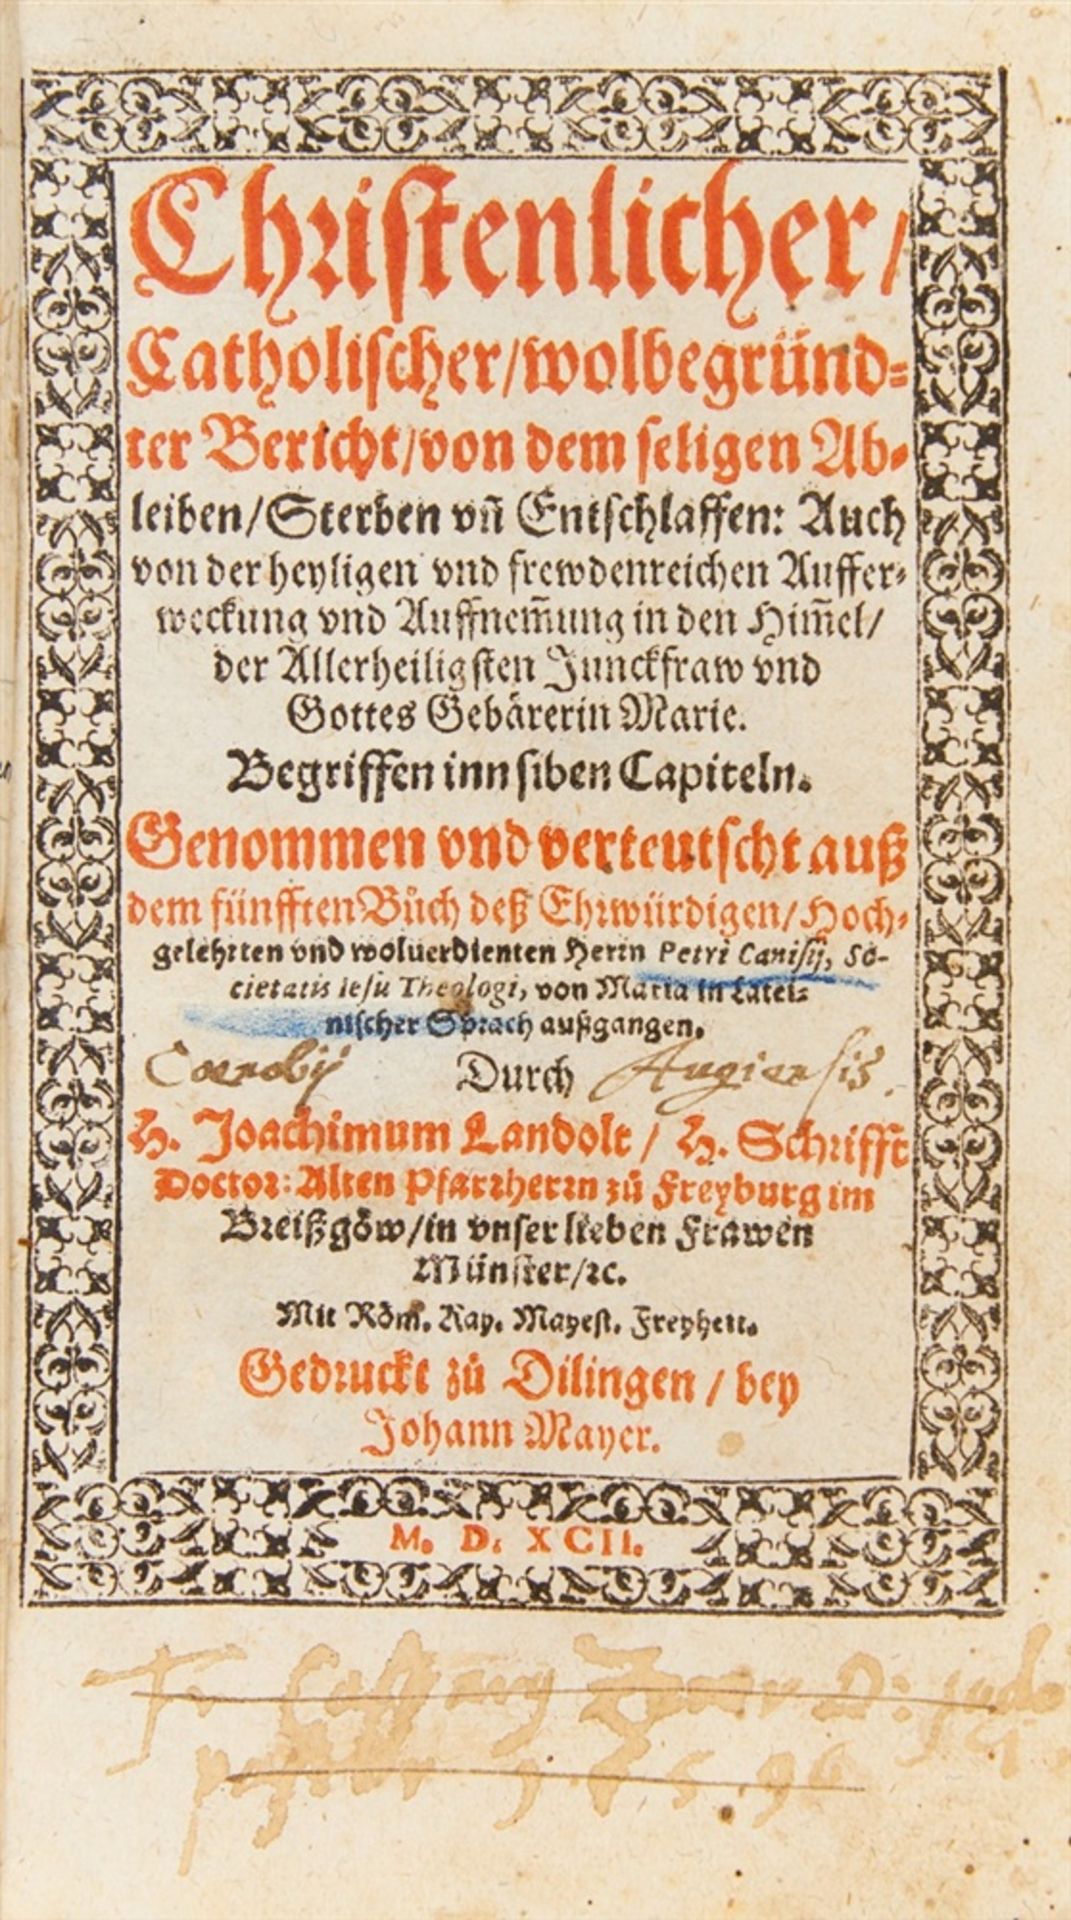 Christenlicher/
Catholischer/wolbegründ=
ter Bericht/von dem seligen Ab=
leiben/Sterben vñ Entschlaffen: Auch
von der heyligen vnd frewdenreichen Auffer=
weckung vnd Auffnem̃ung in den Him̃el/
der Allerheiligsten Junckfraw vnd
Gottes Gebärerin Marie.
Begriffen inn siben Capiteln.
Genommen vnd verteutscht auß
dem fünfften Bůch deß Ehrwürdigen/Hoch=
gelehrten vnd woluerdienten Herrn Petri Canisij, So-
cietatis Iesu Theologi, von Maria in Latei=
nischer Sprach außgangen.
Coenobij Durch Augiensis.
H. Joachimum Landolt/ H. Schrifft
Doctor: Alten Pfarrherrn zů Freyburg im
Breißgöw/in vnser lieben Frawen
Münster/ꝛc.
Mit Röm. Kay. Mayest. Freyheit.
Gedruckt zů Dilingen/bey
Johann Mayer.
M. D. XCII.